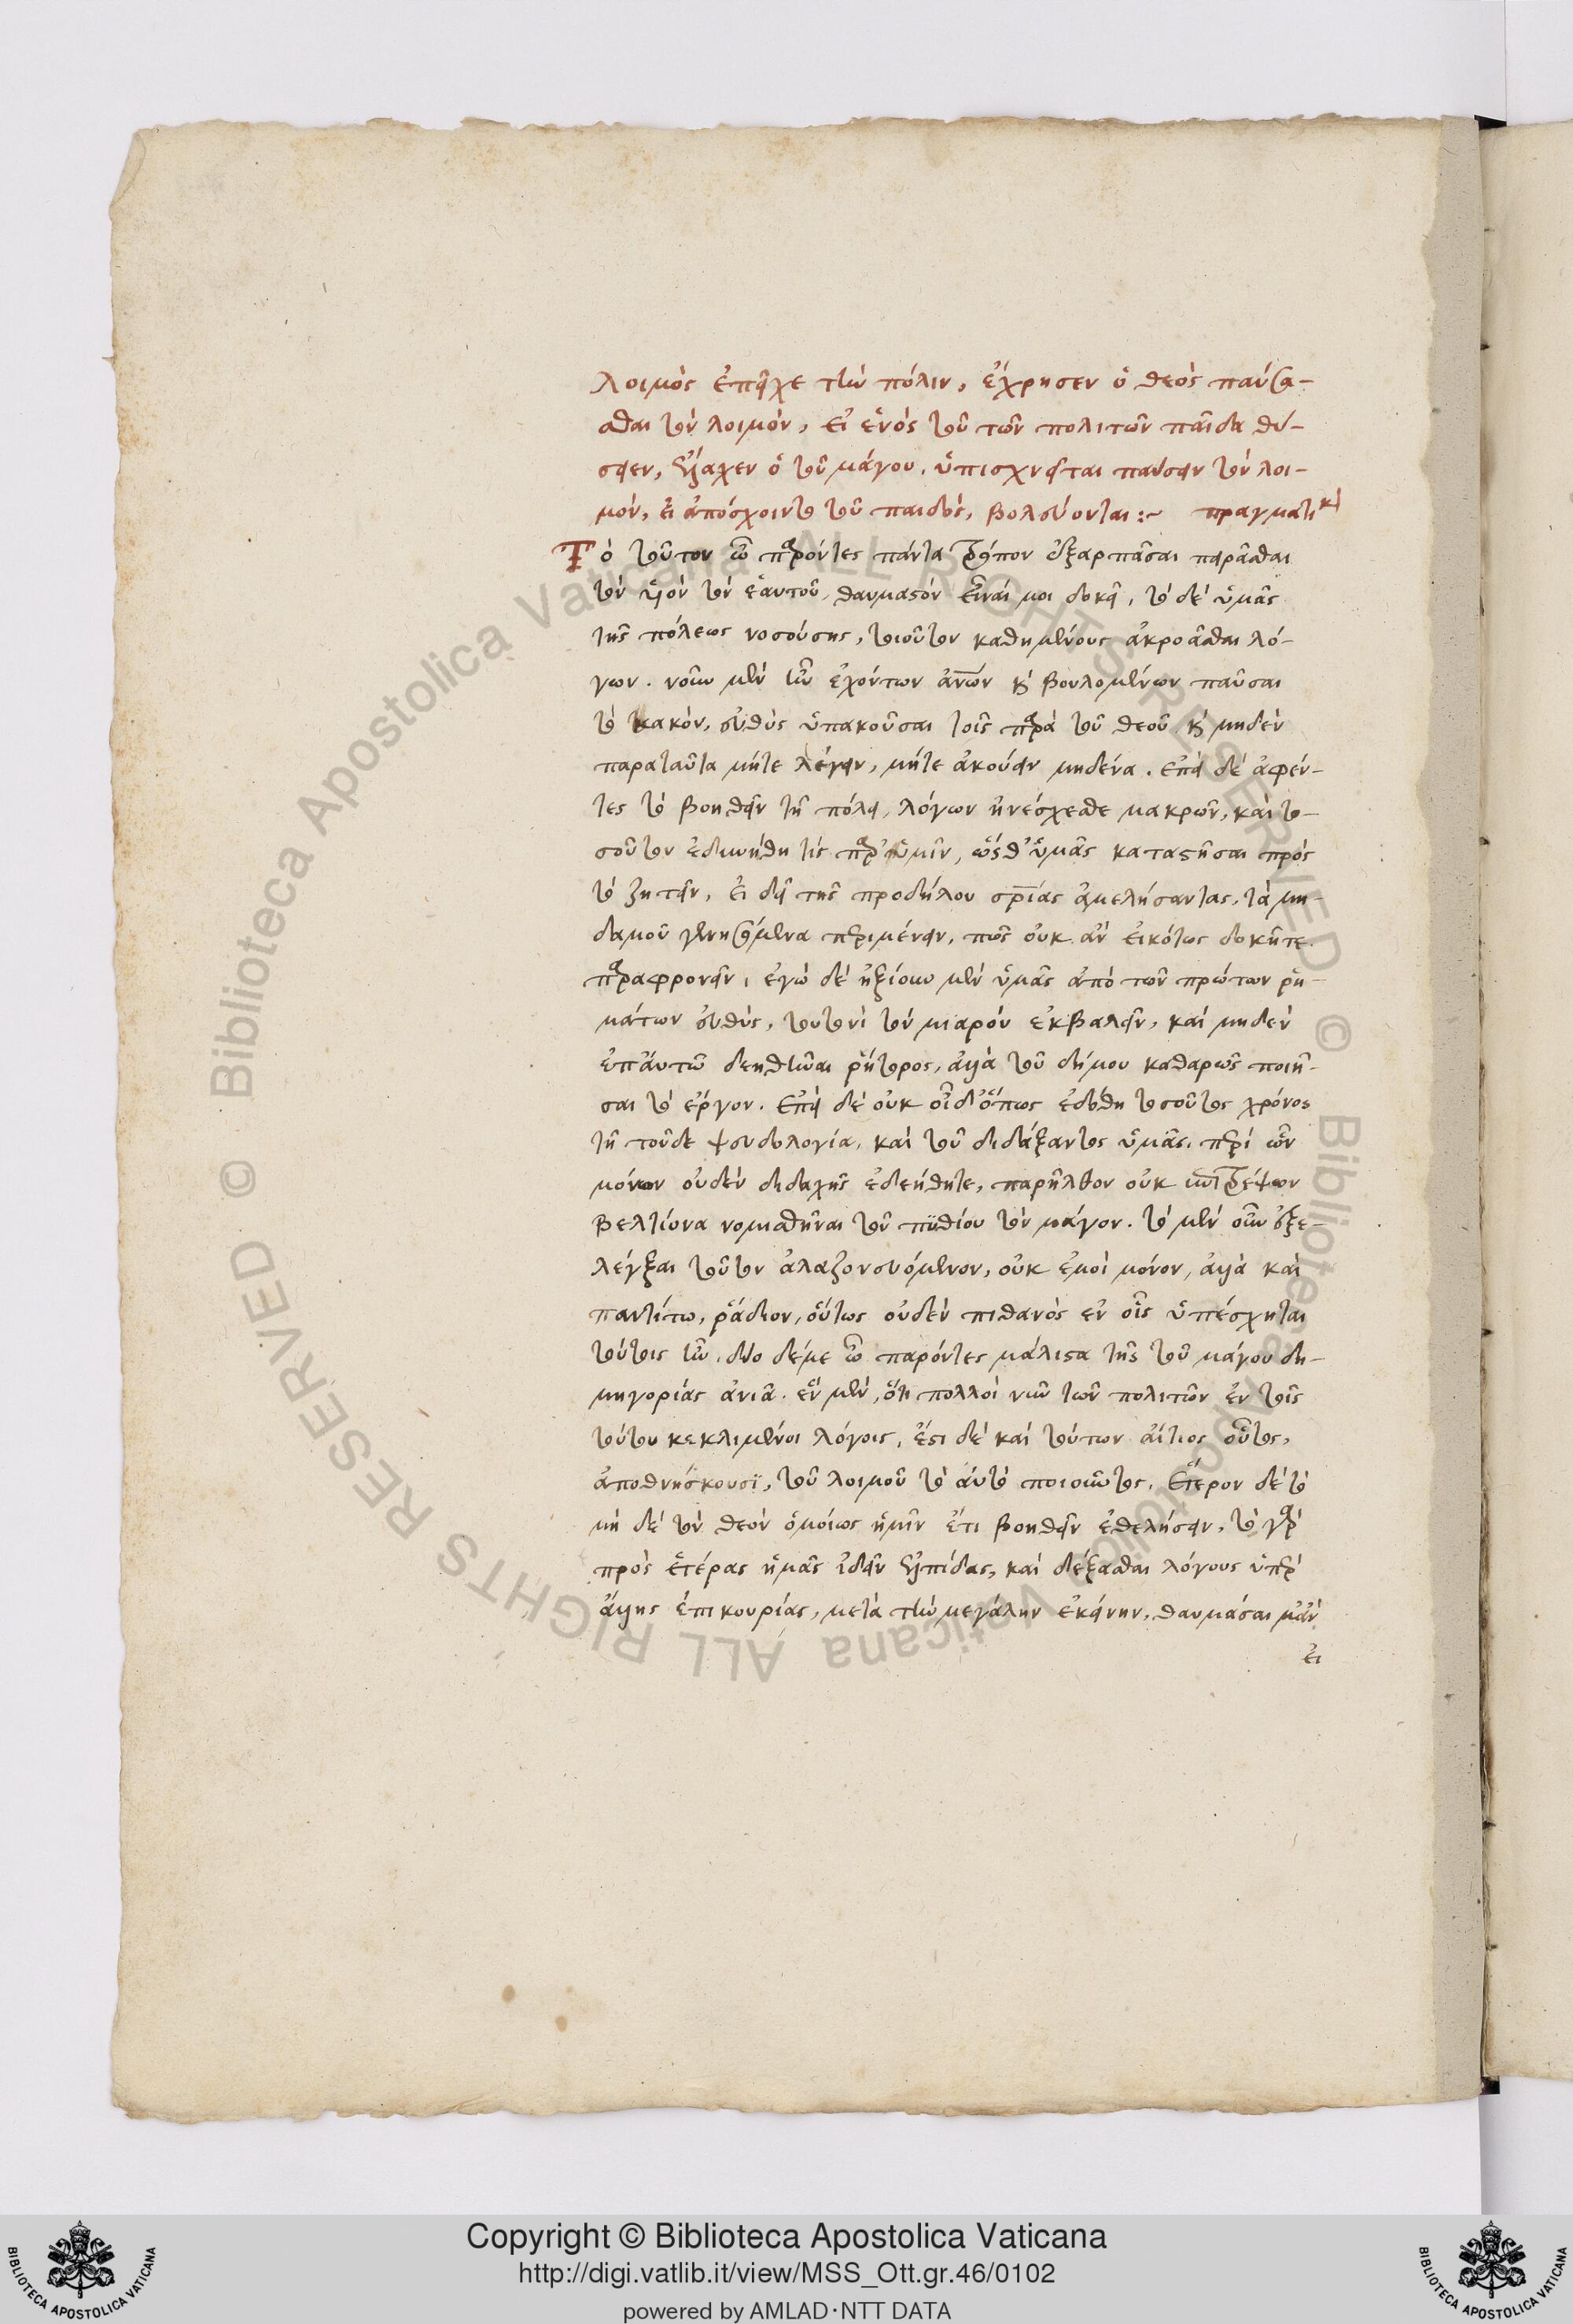 Λοιμὸς ἐπεῖχε τὴν πόλιν, ἔχρησεν ὁ θεὸς παύσα-
σθαι τὸν λοιμόν, εἰ ἑνός του τῶν πολιτῶν παῖδα θύ-
σειεν, ἔλαχεν ὁ τοῦ μάγου, ὑπισχνεῖται παύσειν τὸν λοι-
μόν, εἰ ἀπόσχοιντο τοῦ παιδός, βουλεύονται :~ πραγματικὴ
Τὸ τοῦτον ὦ παρόντες πάντα τρόπον ἐξαρπάσαι πειρᾶσθαι
τὸν υἱὸν τὸν ἑαυτοῦ, θαυμαστὸν εἶναί μοι δοκεῖ, τὸ δὲ ὑμᾶς
τῆς πόλεως νοσούσης, τοιοῦτον καθημένους ἀκροᾶσθαι λό-
γων. νοῦν μὲν ἦν ἐχόντων ἀνθρώπων καὶ βουλομένων παῦσαι
τὸ κακὸν, εὐθὺς ὑπακοῦσαι τοῖς παρὰ τοῦ θεοῦ καὶ μηδὲν
παρὰ ταῦτα μήτε λέγειν, μήτε ἀκούειν μηδένα. ἐπεὶ δὲ ἀφέν-
τες τὸ βοηθεῖν τῇ πόλει, λόγων ἠνέσχεσθε μακρῶν, καὶ το-
σοῦτον ἐδυνήθη τίς παρ' ὑμῖν, ὥσθ' ὑμᾶς καταστῆσαι πρὸς
τὸ ζητεῖν, εἰ δεῖ τῆς προδήλου σωτηρίας ἀμελήσαντας, τὰ μη-
δαμοῦ γενησόμενα περιμένειν, πῶς οὐκ ἂν εἰκότως δοκῆτε
παραφρονεῖν, ἐγὼ δὲ ἠξίουν μὲν ὑμᾶς ἀπὸ τῶν πρώτων ῥη-
μάτων εὐθὺς, τουτονὶ τὸν μιαρὸν ἐκβαλεῖν, καὶ μηδὲν
ἐπ' αὐτῷ δεηθῆναι ῥήτορος, ἀλλὰ τοῦ δήμου καθαρῶς ποιῆ-
σαι τὸ ἔργον. ἐπεὶ δὲ οὐκ οἶδ' ὅπως ἐδόθη τοσοῦτος χρόνος
τῇ τοῦδε ψευδολογίᾳ, καὶ τοῦ διδάξαντος ὑμᾶς, περὶ ὧν
μόνων οὐδὲν διδαχῆς ἐδεήθητε, παρῆλθον οὐκ ἐπιτρέψων
βελτίονα νομισθῆναι τοῦ πϋθίου τὸν μάγον. τὸ μὲν οὖν ἐξε-
λέγξαι τοῦτον ἀλαζονευόμενον, οὐκ ἐμοὶ μόνον, ἀλλὰ καὶ
παντί τῳ, ῥᾴδιον, οὕτως οὐδὲν πιθανὸς ἐν οἷς ὑπέσχηται
τούτοις ἦν. δύο δέ με ὦ παρόντες μάλιστα τῆς τοῦ μάγου δη-
μηγορίας ἀνιᾷ. ἓν μὲν, ὅτι πολλοὶ νῦν τῶν πολιτῶν ἐν τοῖς
τούτου κεκλιμένοι λόγοις, ἔστι δὲ καὶ τούτων αἴτιος οὗτος,
ἀποθνήσκουσϊ, τοῦ λοιμοῦ τὸ αὐτὸ ποιοῦντος. ἕτερον δὲ τὸ
μὴ δὲ τὸν θεὸν ὁμοίως ἡμῖν ἔτι βοηθεῖν ἐθελήσειν, τὸ γὰρ
πρὸς ἑτέρας ἡμᾶς ἰδεῖν ἐλπίδας, καὶ δέξασθαι λόγους ὑπὲρ
ἄλλης ἐπικουρίας, μετὰ τὴν μεγάλην ἐκείνην, θαυμάσαι μὲν
εἰ
Copyright © Biblioteca Apostolica Vaticana
http://digi.vatlib.it/view/MSS_Ott.gr.46/0102
powered by AMLAD·NTT DATA
BIBLIOTECA APOSTOLICA VATICANA
BIBLIOTECA APOSTOLICA VATICANA
© Biblioteca Apostolica Vaticana ALL RIGHTS RESERVED
© Biblioteca Apostolica Vaticana ALL RIGHTS RESERVED